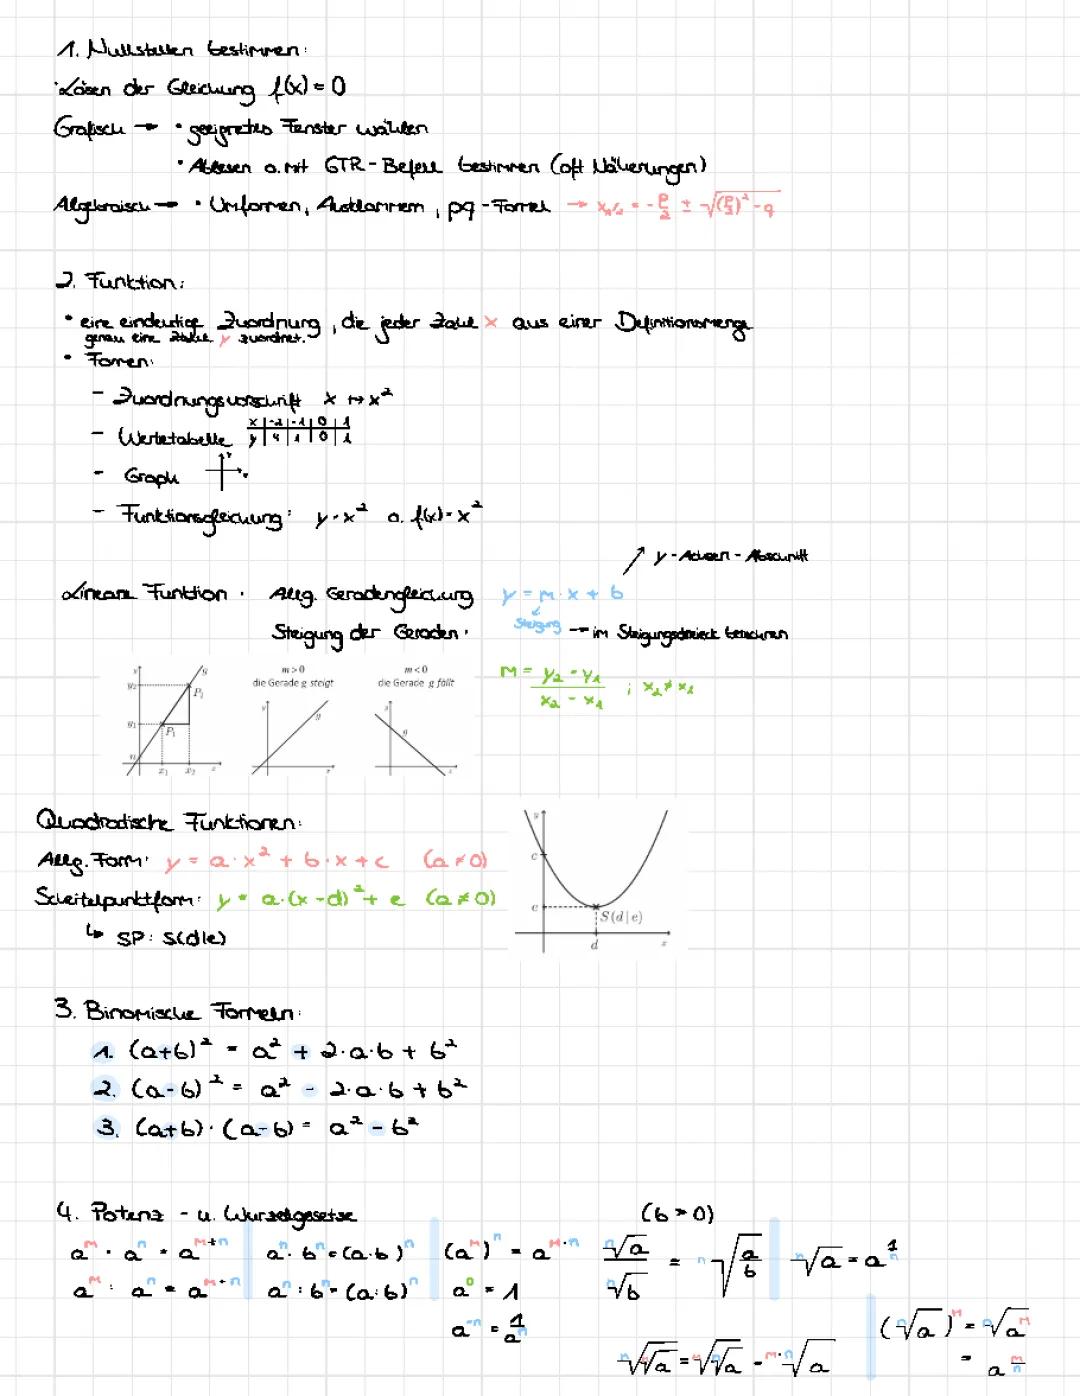 1. Nullstellen bestimmen:
· Lösen der Gleichung f(x) = 0
Grafisch → • geeignetes Fenster wählen
• Ablesen o. mit GTR-Befehl bestimmen (oft Näherungen)
Algebraisch → • Umformen, Ausklammern, pq-Formel → x₁/₂ = -p/2 ± √((p/2)² - q)
2. Funktion:
• eine eindeutige Zuordnung, die jeder Zahl x aus einer Definitionsmenge
genau eine Zahl y zuordnet.
• Formen:
- Zuordnungsvorschrift x ↦ x²
- Wertetabelle x | -2 | -1 | 0 | 1
y | 4 | 1 | 0 | 1
- Graph
- Funktionsgleichung: y = x² o. f(x) = x²
↗ y-Achsen-Abschnitt
Lineare Funktion: Allg. Geradengleichung y = m · x + b
Steigung der Geraden: Steigung → im Steigungsdreieck berechnen
m = (y₂ - y₁)/(x₂ - x₁) ; x₂ ≠ x₁
y g y₂ P₂ y₁ P₁ n x₁ x₂ x
m > 0
die Gerade g steigt
y g x
m < 0
die Gerade g fällt
y g x
Quadratische Funktionen:
Allg. Form: y = a · x² + b · x + c (a ≠ 0)
Scheitelpunktform: y = a · (x - d)² + e (a ≠ 0)
↳ SP: S(d|e)
y c e S(d|e) d x
3. Binomische Formeln:
1. (a+b)² = a² + 2·a·b + b²
2. (a-b)² = a² - 2·a·b + b²
3. (a+b)·(a-b) = a² - b²
4. Potenz- u. Wurzelgesetze (b > 0)
aᵐ · aⁿ = aᵐ⁺ⁿ | aⁿ · bⁿ = (a·b)ⁿ | (aᵐ)ⁿ = aᵐ·ⁿ ⁿ√a / ⁿ√b = ⁿ√(a/b) | ⁿ√a = a^(1/n)
aᵐ : aⁿ = aᵐ⁺ⁿ | aⁿ : bⁿ = (a:b)ⁿ | a⁰ = 1
a⁻ⁿ = 1/aⁿ
(ⁿ√a)ᵐ = ⁿ√aᵐ
ⁿ√(ᵐ√a) = ᵐ√(ⁿ√a) = ᵐ·ⁿ√a
= a^(m/n)